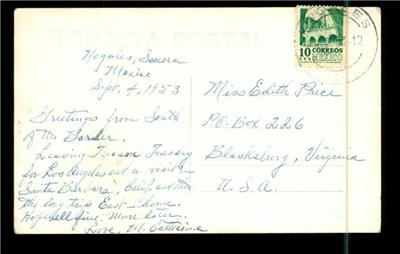 TARJETA POSTAL
Nogales, Sonora
Mexico
Sept. 4, 1953
Greetings from South
of the Border.
Leaving Tucson Tuesday
for Los Angeles and a visit in
Santa Barbara, Calif. and then
the long trip East - home.
Hope well & fine. More later.
Love, M. Catherine
10 CORREOS
MEXICO
Miss Edith Price
P.O. Box 226
Blacksburg, Virginia
U. S. A.